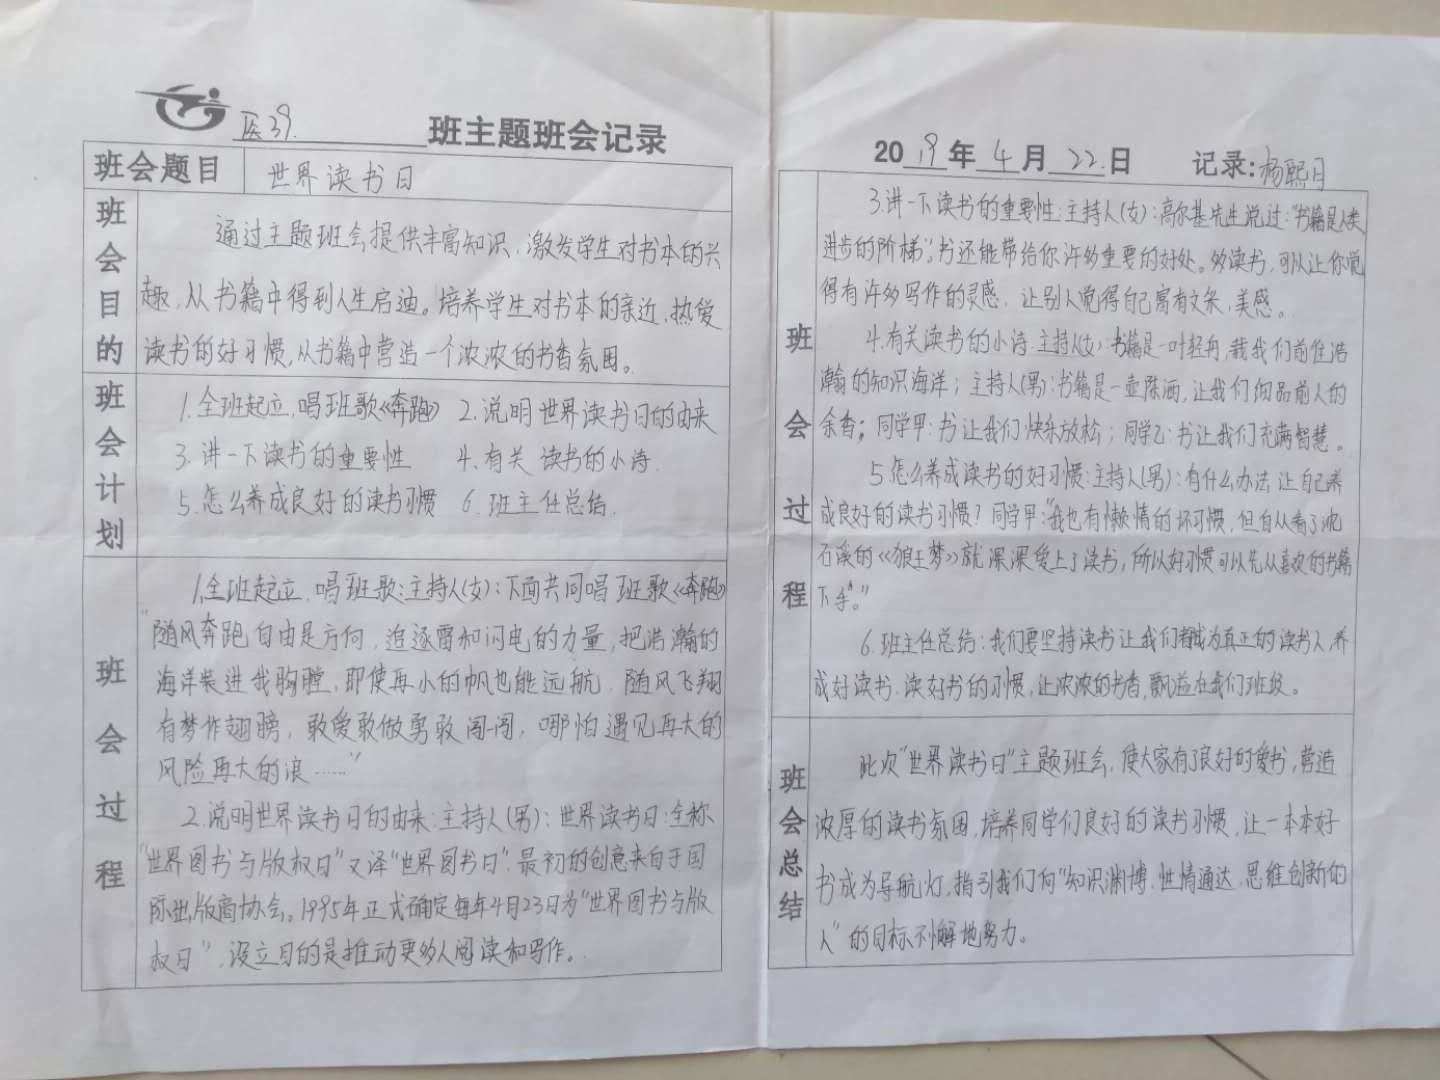 医39. 班主题班会记录
班会题目 世界读书日
班会目的
通过主题班会提供丰富知识,激发学生对书本的兴
趣,从书籍中得到人生启迪。培养学生对书本的亲近、热爱
读书的好习惯,从书籍中营造一个浓浓的书香氛围。
班会计划
1.全班起立,唱班歌《奔跑》 2.说明世界读书日的由来
3.讲一下读书的重要性 4.有关读书的小诗.
5.怎么养成良好的读书习惯 6.班主任总结.
班会过程
1.全班起立.唱班歌:主持人(女):下面共同唱班歌《奔跑》
"随风奔跑自由是方向,追逐雷和闪电的力量,把浩瀚的
海洋装进我胸膛,即使再小的帆也能远航,随风飞翔
有梦作翅膀,敢爱敢做勇敢闯一闯,哪怕遇见再大的
风险再大的浪……"
2.说明世界读书日的由来:主持人(男):世界读书日:全称
"世界图书与版权日"又译"世界图书日",最初的创意来自于国
际出版商协会。1995年正式确定每年4月23日为"世界图书与版
权日",设立目的是推动更多人阅读和写作。
2019年4月22.日 记录:杨熙月
班会过程
3.讲一下读书的重要性:主持人(女):高尔基先生说过:"书籍是人类
进步的阶梯",书还能带给你许多重要的好处。多读书,可以让你觉
得有许多写作的灵感,让别人觉得自己富有文采,美感。
4.有关读书的小诗.主持人(女):书籍是一叶轻舟,载我们前往浩
瀚的知识海洋;主持人(男):书籍是一壶陈酒,让我们细品前人的
余香;同学甲:书让我们快乐放松;同学乙:书让我们充满智慧。
5.怎么养成读书的好习惯:主持人(男):有什么办法让自己养
成良好的读书习惯?同学甲:"我也有懒惰的坏习惯,但自从看了沈
石溪的《狼王梦》就深深爱上了读书,所以好习惯可以先从喜欢的书籍
下手。"
6.班主任总结:我们要坚持读书让我们都成为真正的读书人,养
成好读书.读好书的习惯,让浓浓的书香,飘溢在我们班级。
班会总结
此次"世界读书日"主题班会,使大家有了良好的爱书,营造
浓厚的读书氛围,培养同学们良好的读书习惯,让一本本好
书成为导航灯,指引我们向"知识渊博,性情通达,思维创新的
人"的目标不懈地努力。